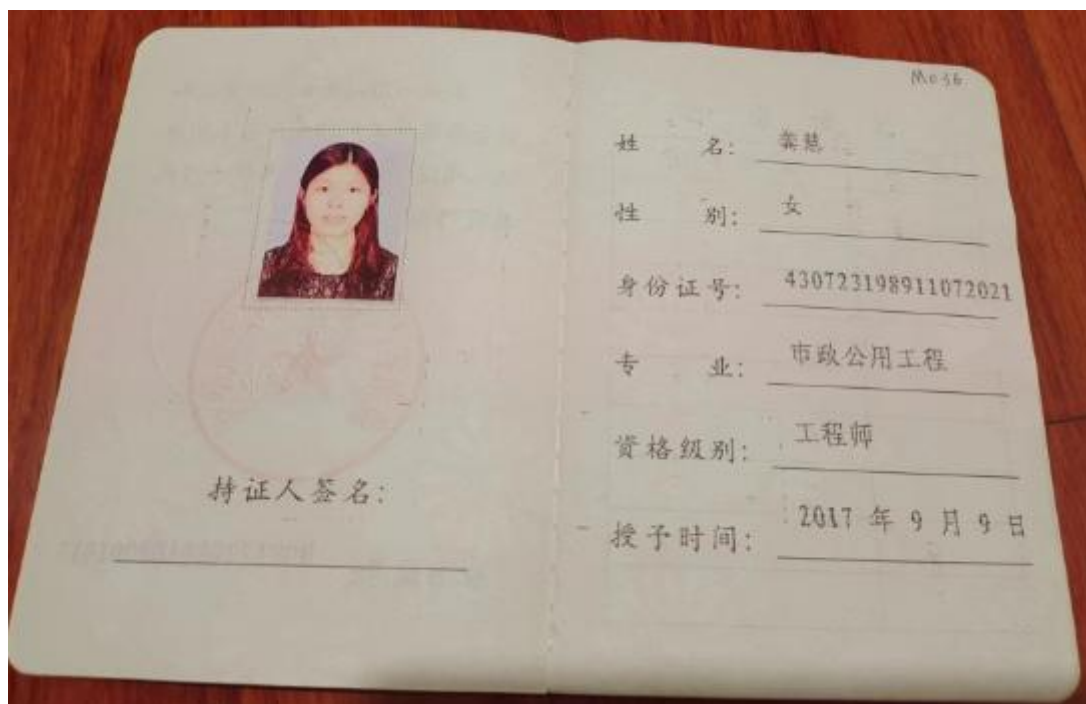 M036
姓 名:
性 别: 女
身份证号: 430723198911072021
专 业: 市政公用工程
资格级别: 工程师
授予时间: 2017 年 9 月 9 日
持证人签名: